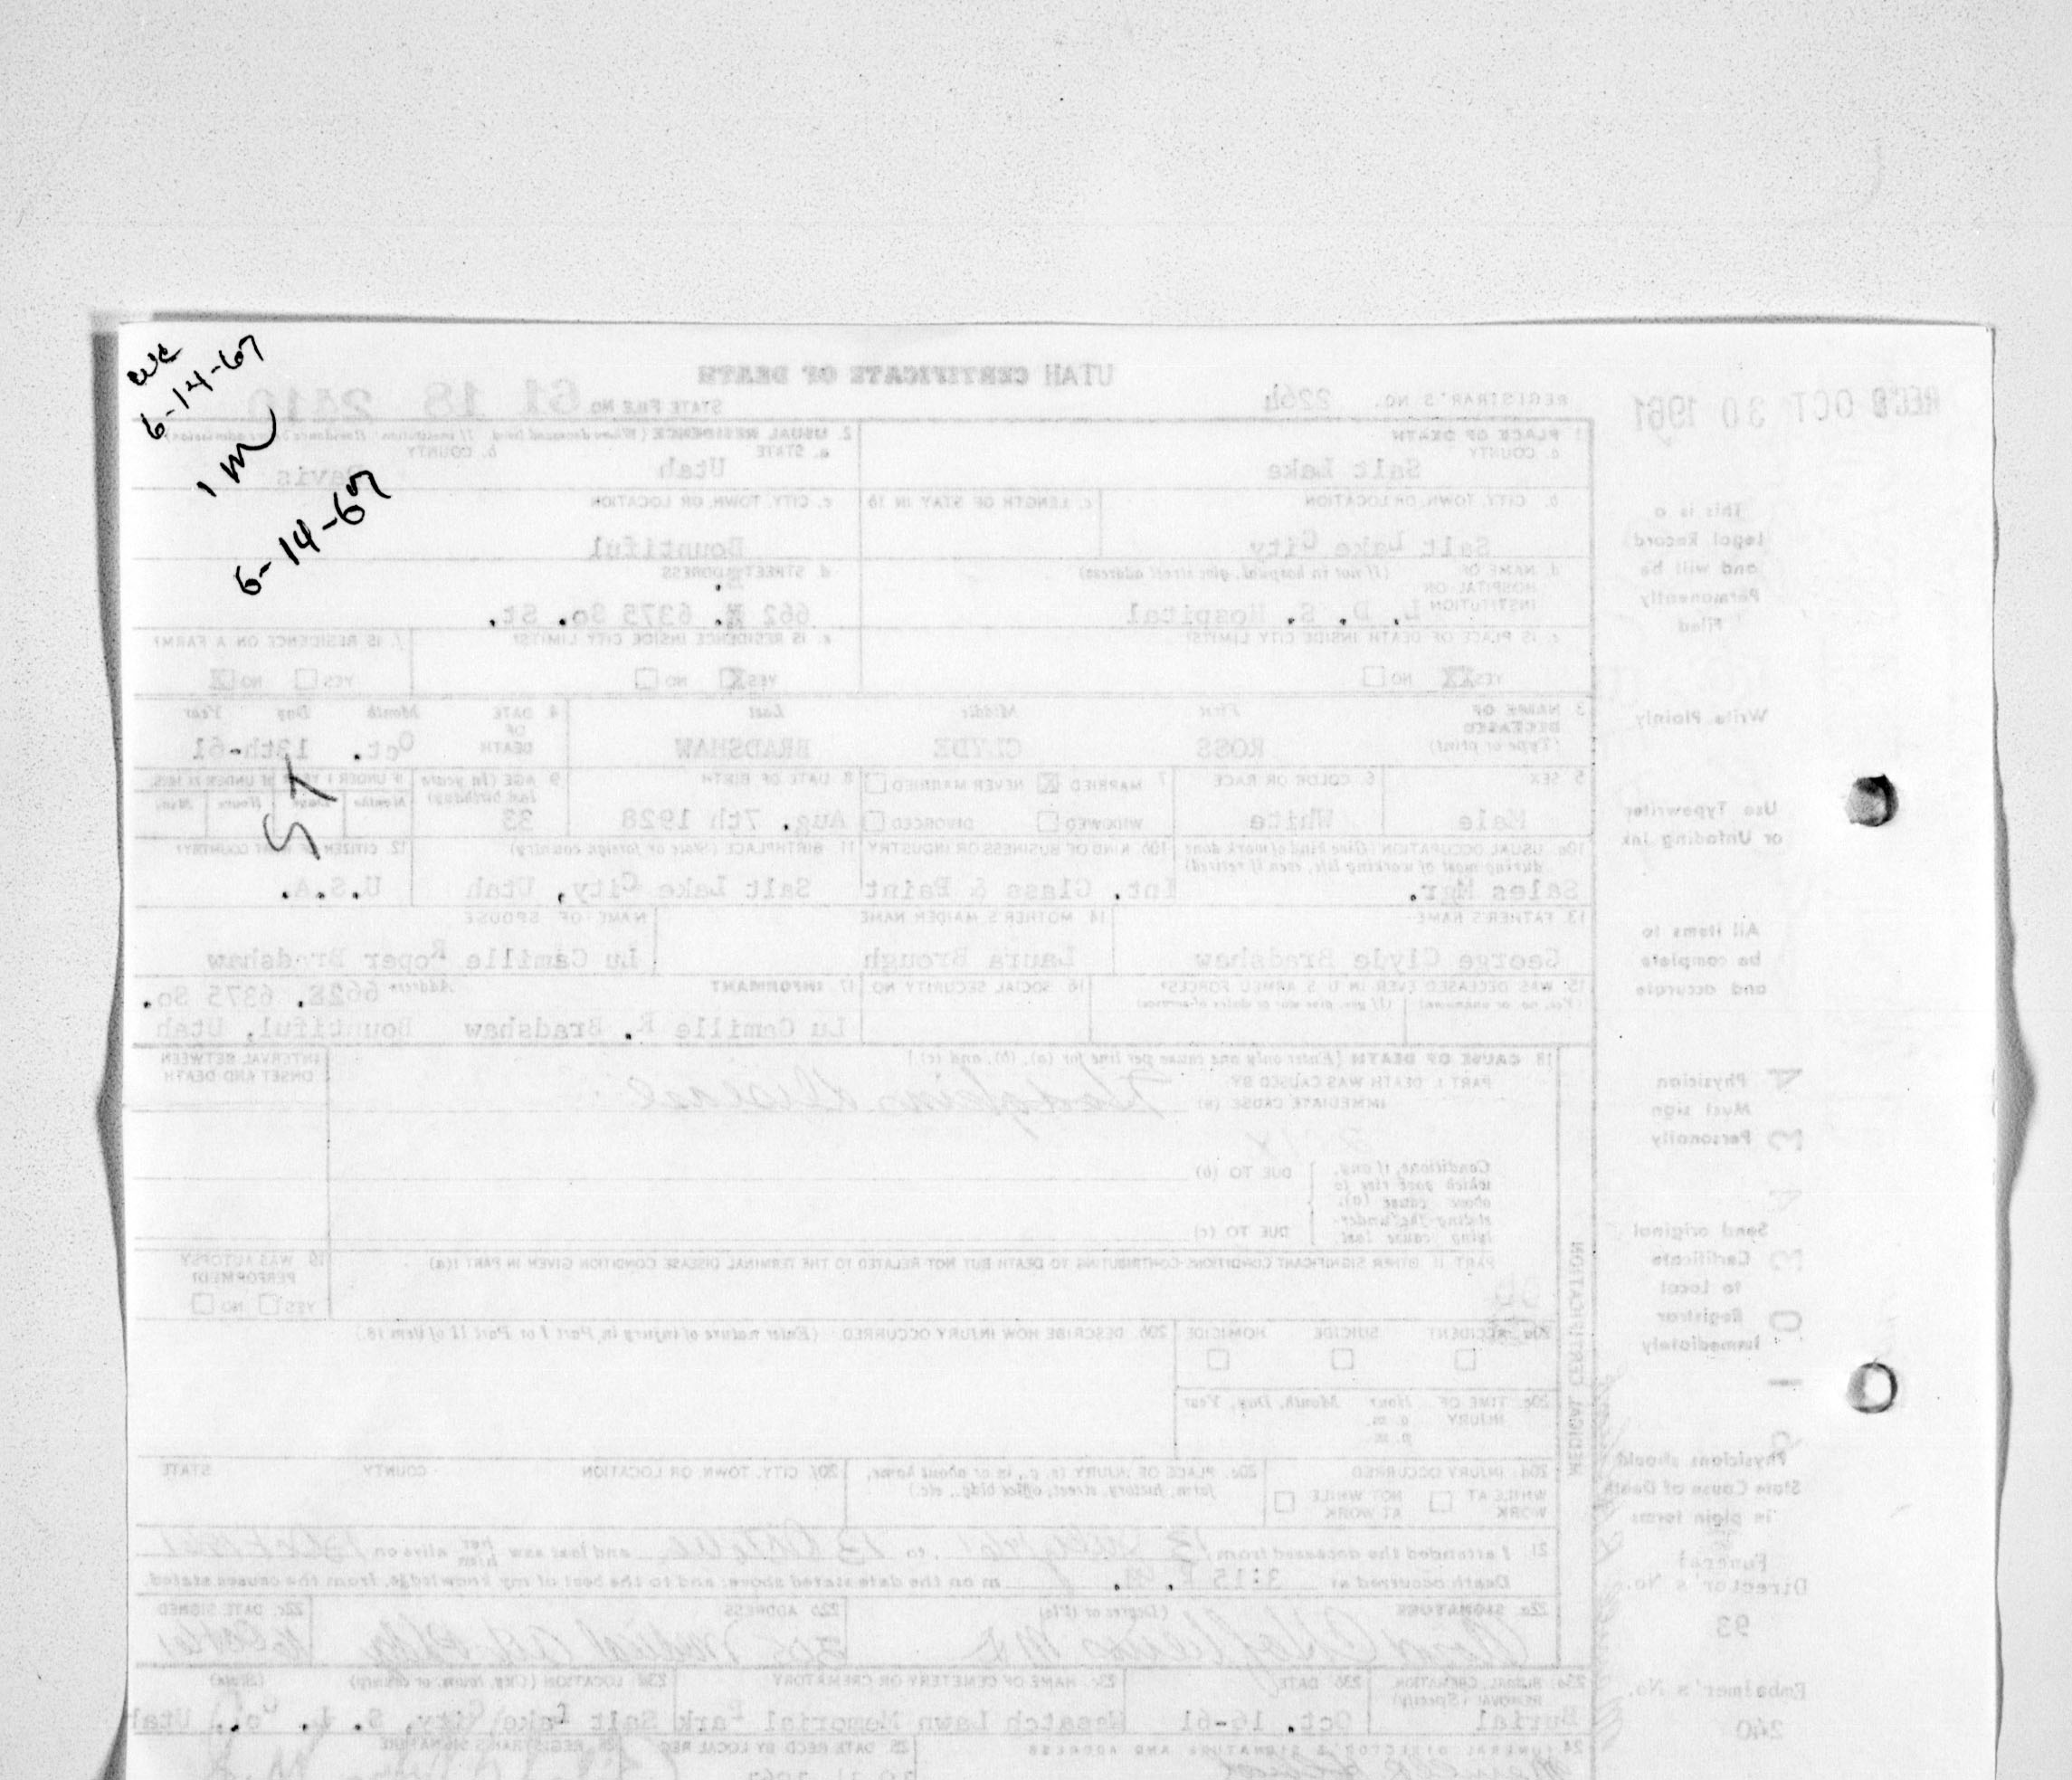 6-14-67
1 m
6-14-67
UTAH CERTIFICATE OF DEATH
REC'D OCT 30 1961
REGISTRAR'S NO. 2264
STATE FILE NO. 61 18
This is a
Legal Record
and will be
Permanently
Filed
Write Plainly
Use Typewriter
or Unfading Ink
All items to
be complete
and accurate
Physician
Must sign
Personally
Send original
Certificate
to Local
Registrar
Immediately
Physicians should
State Cause of Death
in plain terms
Funeral
Director's No.
93
Embalmer's No.
240
1. PLACE OF DEATH
a. COUNTY
Salt Lake
2. USUAL RESIDENCE (Where deceased lived. If institution: Residence before admission)
a. STATE Utah b. COUNTY Davis
b. CITY, TOWN, OR LOCATION
Salt Lake City
c. LENGTH OF STAY IN 1b
c. CITY, TOWN, OR LOCATION
Bountiful
d. NAME OF HOSPITAL OR INSTITUTION (If not in hospital, give street address)
L. D. S. Hospital
d. STREET ADDRESS
662 6375 So. St.
e. IS PLACE OF DEATH INSIDE CITY LIMITS?
YES NO
e. IS RESIDENCE INSIDE CITY LIMITS?
YES NO
f. IS RESIDENCE ON A FARM?
YES NO
3. NAME OF DECEASED (Type or print)
First Middle Last
ROSS CLYDE BRADSHAW
4. DATE OF DEATH Month Day Year
Oct. 13th-61
5. SEX
Male
6. COLOR OR RACE
White
7. MARRIED NEVER MARRIED
WIDOWED DIVORCED
8. DATE OF BIRTH
Aug. 7th 1928
9. AGE (In years last birthday)
33
IF UNDER 1 YEAR IF UNDER 24 HRS.
Months Days Hours Min.
ST
10a. USUAL OCCUPATION (Give kind of work done during most of working life, even if retired)
Sales Mgr.
10b. KIND OF BUSINESS OR INDUSTRY
Int. Glass & Paint
11. BIRTHPLACE (State or foreign country)
Salt Lake City, Utah
12. CITIZEN OF WHAT COUNTRY?
U.S.A.
13. FATHER'S NAME
George Clyde Bradshaw
14. MOTHER'S MAIDEN NAME
Laura Brough
NAME OF SPOUSE
Lu Camille Roper Bradshaw
15. WAS DECEASED EVER IN U.S. ARMED FORCES?
(Yes, no, or unknown) (If yes, give war or dates of service)
16. SOCIAL SECURITY NO.
17. INFORMANT Address
6375 So.
Lu Camille R. Bradshaw Bountiful, Utah
18. CAUSE OF DEATH [Enter only one cause per line for (a), (b), and (c).]
PART I. DEATH WAS CAUSED BY:
IMMEDIATE CAUSE (a) Hodgkins Disease
INTERVAL BETWEEN
ONSET AND DEATH
Conditions, if any,
which gave rise to
above cause (a),
stating the under-
lying cause last.
DUE TO (b)
DUE TO (c)
PART II. OTHER SIGNIFICANT CONDITIONS CONTRIBUTING TO DEATH BUT NOT RELATED TO THE TERMINAL DISEASE CONDITION GIVEN IN PART I(a)
19. WAS AUTOPSY
PERFORMED?
YES NO
MEDICAL CERTIFICATION
20a. ACCIDENT SUICIDE HOMICIDE
20b. DESCRIBE HOW INJURY OCCURRED. (Enter nature of injury in Part I or Part II of item 18.)
20c. TIME OF INJURY Hour Month, Day, Year
a. m.
p. m.
20d. INJURY OCCURRED
WHILE AT WORK NOT WHILE AT WORK
20e. PLACE OF INJURY (e. g., in or about home, farm, factory, street, office bldg., etc.)
20f. CITY, TOWN, OR LOCATION COUNTY STATE
21. I attended the deceased from 13 to 13 and last saw her him alive on
Death occurred at 3:15 P. M. m on the date stated above; and to the best of my knowledge, from the causes stated.
22a. SIGNATURE (Degree or title)
22b. ADDRESS
22c. DATE SIGNED
23a. BURIAL, CREMATION, REMOVAL (Specify)
Burial
23b. DATE
Oct. 16-61
23c. NAME OF CEMETERY OR CREMATORY
Wasatch Lawn Memorial Park
23d. LOCATION (City, town, or county) (State)
Salt Lake City, S. L. Co., Utah
24. FUNERAL DIRECTOR'S SIGNATURE AND ADDRESS
25. DATE REC'D BY LOCAL REG.
26. REGISTRAR'S SIGNATURE